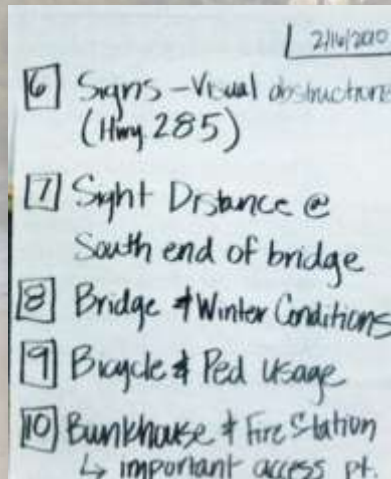 2/16/2010
6 Signs - Visual obstructions
(Hwy 285)
7 Sight Distance @
South end of bridge
8 Bridge & Winter Conditions
9 Bicycle & Ped Usage
10 Bunkhouse & Fire Station
↳ important access pt.